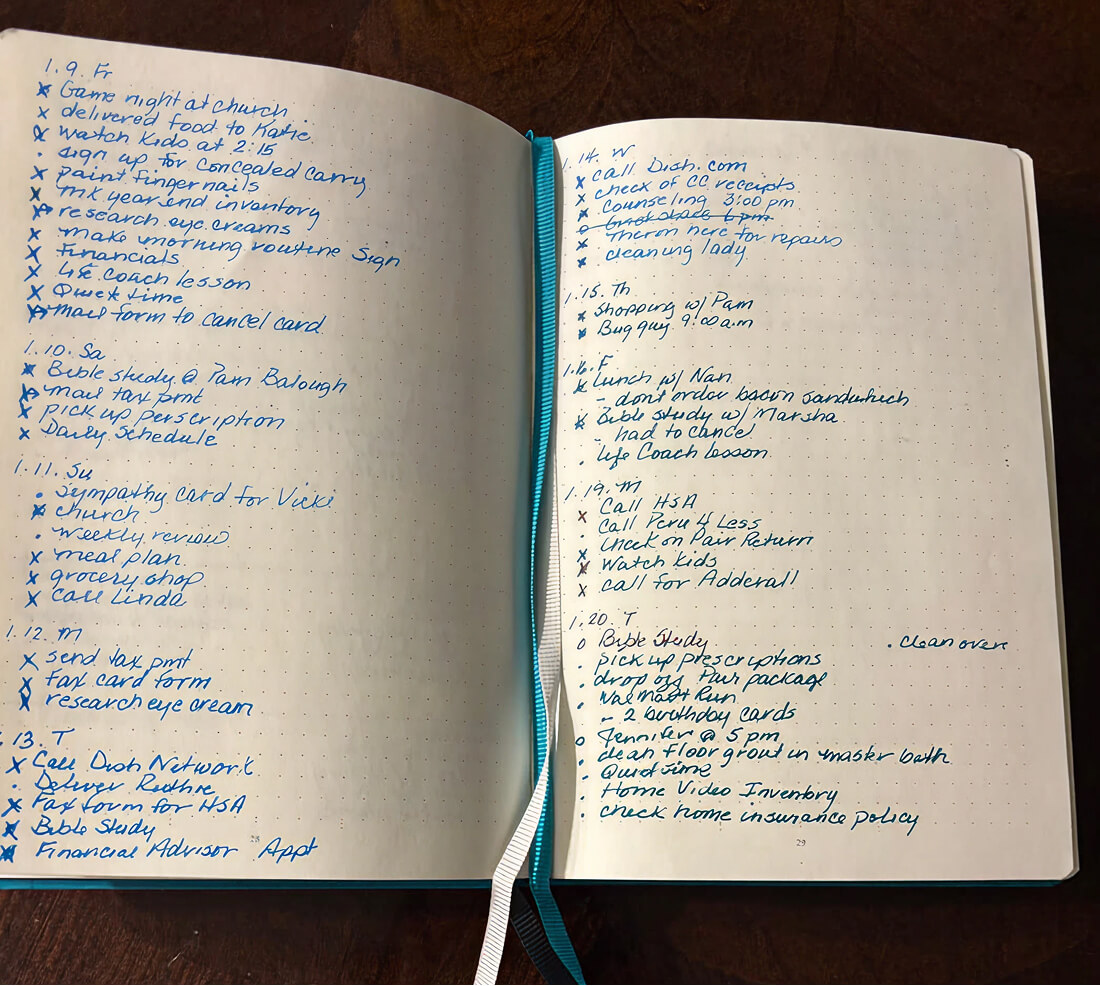 1.9. Fr
x Game night at church
x delivered food to Katie
x watch kids at 2:15
· sign up for concealed carry
x paint fingernails
x mk year end inventory
x research eye creams
x make morning routine Sign
x Financials
x life coach lesson
x Quiet time
x mail form to cancel card
1.10. Sa
x Bible study @ Pam Balough
x mail tax pmt
x pick up perscription
x Daily Schedule
1.11. Su
· Sympathy card for Vicki
x church
· weekly review
x meal plan
x grocery shop
x Call Linda
1.12. M
x send tax pmt
x Fax card form
x research eye cream
13. T
x Call Dish Network
· Deliver Ruthie
x Fax form for HSA
x Bible Study
x Financial Advisor Appt
28
1.14. W
x call Dish.com
x check of CC receipts
x Counseling 3:00 pm
o 6pm
x Theron here for repairs
x cleaning lady
1.15. Th
x Shopping w/ Pam
x Bug guy 9:00 a.m
1.16. F
x Lunch w/ Nan
- don't order bacon sandwhich
x Bible study w/ Marsha
- had to cancel
· Life Coach lesson
1.19. M
x Call HSA
· Call Peru 4 Less
x Check on Pair Return
x Watch Kids
x call for Adderall
1.20. T
o Bible Study
· clean oven
· pick up prescriptions
· drop off Pair package
· Walmart Run
- 2 birthday cards
o Jennifer @ 5 pm
· clean floor grout in master bath
· Quiet time
· Home Video Inventory
· check home insurance policy
29